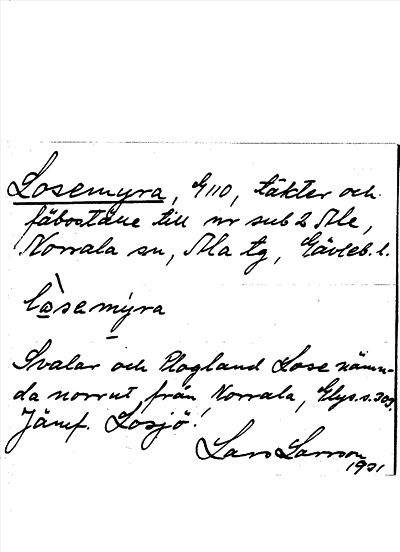 Losemyra, G110, täkter och
fäboställe till nr sub 2 Ale,
Norrala sn, Ala tg, Gävleb. l.
låsemyra
Svalar och Plogland Lose nämn-
da norrut från Norrala, Elys. s. 303.
Jämf. Losjö!
Lars Larsson
1931